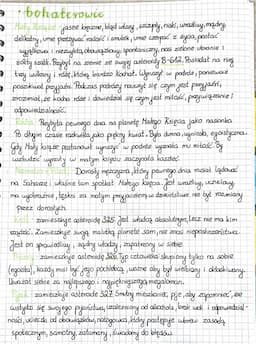 • bohaterowie
Mały Książę - jasne kręcone, blond włosy, szczupły, niski, wrażliwy, mądry,
delikatny, umie przeżywać radość i smutek, umie czerpać z życia, postać
wyjątkowa i niezwykła, obowiązkowy, spontaniczny, nosi zielone ubranie i
żółty szalik. Przybył na ziemię ze swojej asteroidy B-612. Posiadał na niej
trzy wulkany i różę, którą bardzo kochał. Wyruszył w podróż, ponieważ
poszukiwał przyjaźni. Podczas podróży nauczył się czym jest przyjaźń,
zrozumiał, że kocha różę i dowiedział się czym jest miłość, przywiązanie i
odpowiedzialność.
Róża - Przybyła pewnego dnia na planetę Małego Księcia jako nasionko.
Po długim czasie rozkwitła jako piękny kwiat. Była dumna, wyniosła, egoistyczna.
Gdy Mały książę postanowił wyruszyć w podróż wyznała mu miłość. By
wzbudzić wyrzuty w małym księciu zaczynała kaszleć.
Narrator - Pilot - Dorosły mężczyzna, który pewnego dnia musiał lądować
na Saharze i właśnie tam spotkał Małego księcia. Jest wrażliwy, uczuciowy,
ma wyobraźnię, tęskni za małym przyjacielem, w dzieciństwie nie był rozumiany
przez dorosłych.
Król - zamieszkuje asteroidę 325. Jest władcą absolutnym, lecz nie ma kim
rządzić. Zamieszkuje swoją malutką planetę sam, nie znosi nieposłuszeństwa.
Jest on sprawiedliwy, sądny władcy, zapatrzony w siebie.
Próżny - zamieszkuje asteroidę 326. Typ człowieka skupiony tylko na sobie
(egoista), każdy musi być jego pochlebcą, ważne aby był wielbiony i oklaskiwany.
Uważał siebie za najlepszego i najpiękniejszego, megaloman.
Pijak - zamieszkuje asteroidę 327. Smutny mieszkaniec, pije, aby zapomnieć, że
wstydzi się swojego pijaństwa, uzależniony od alkoholu, brak woli i odpowiedzial-
ności, ucieczka od obowiązków, nałogowiec, który postępuje wbrew zasadą
społecznym, samotny, załamany, świadomy do błędów.